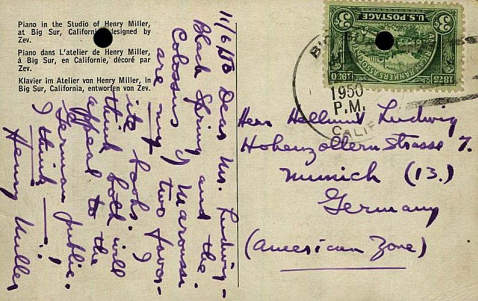 Piano in the Studio of Henry Miller,
at Big Sur, California, designed by
Zev.
Piano dans L'atelier de Henry Miller,
à Big Sur, en Californie, décoré par
Zev.
Klavier im Atelier von Henry Miller, in
Big Sur, California, entworfen von Zev.
Dear Mr. Ludwig –
Black Spring and the
Colossus of Maroussi
are my two favor-
ite books. I
think both will
appeal to the
German public.
I think — !
Henry Miller
U.S. POSTAGE
3¢
1875
1950
1950
P.M.
CALIF
Herr Hellmut Ludwig
Hohenzollern Strasse 7.
Munich (13.)
Germany
(American Zone)